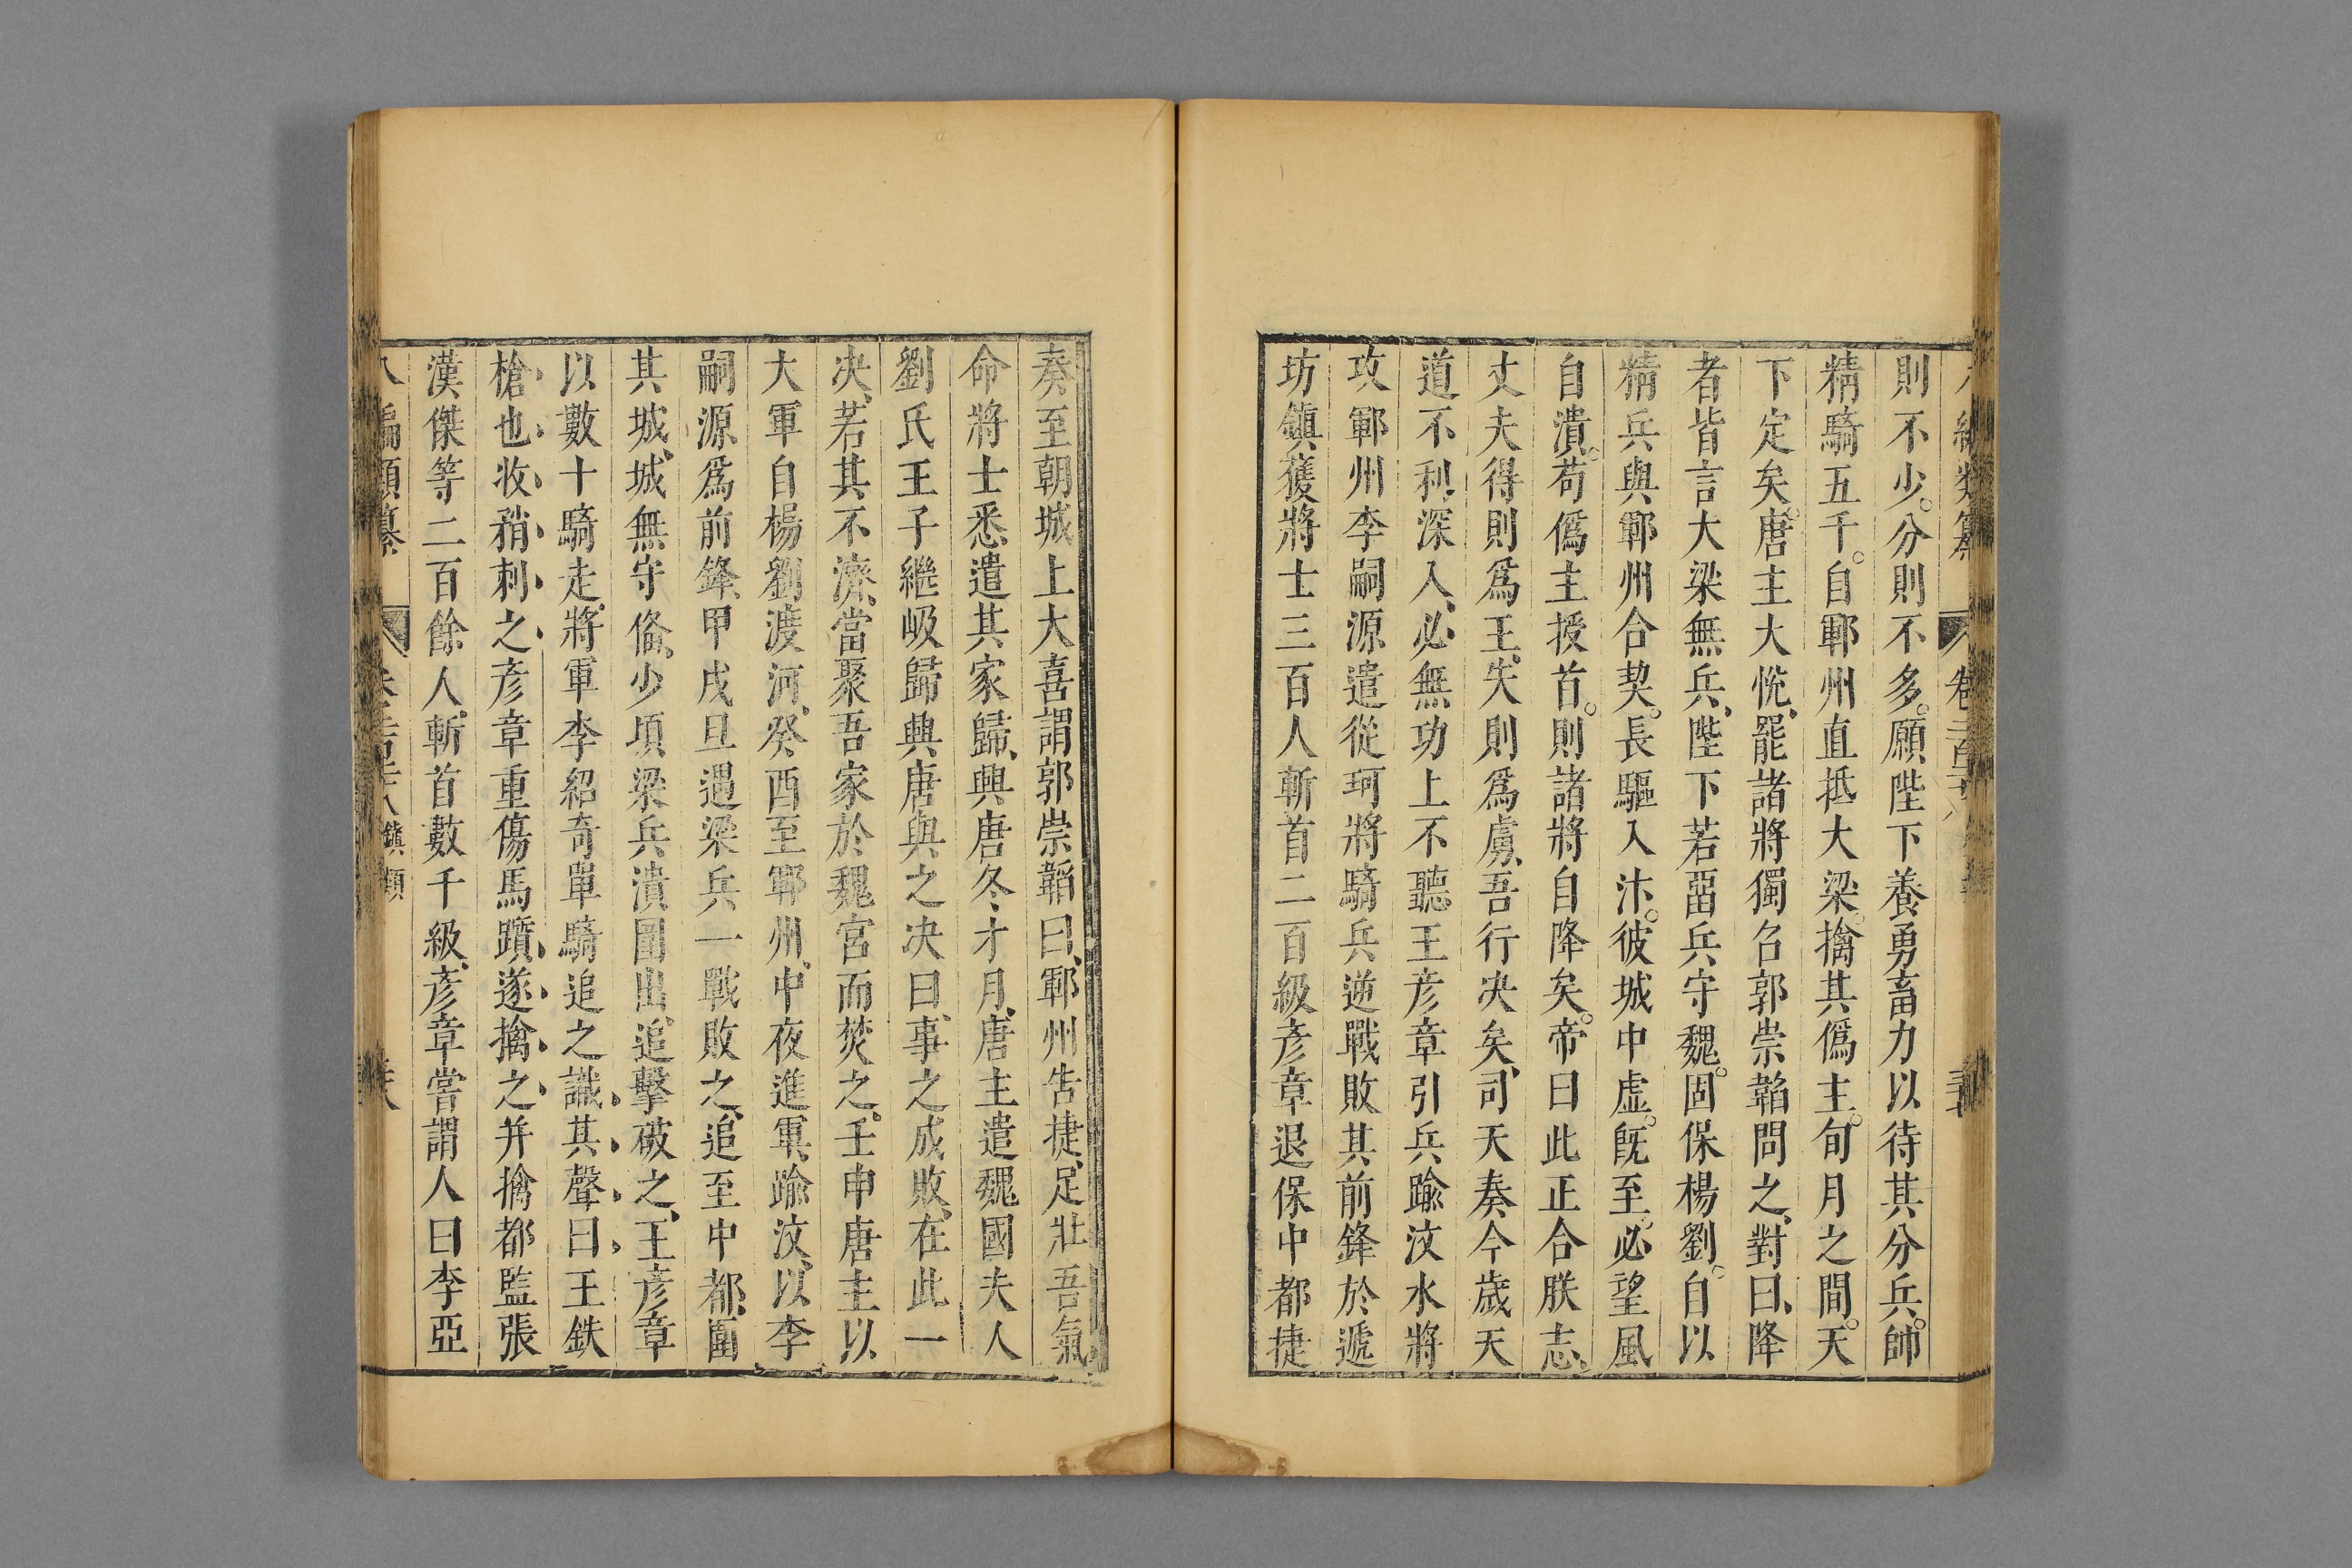 則不少分則不多願陛下養勇畜力以待其分兵帥
精騎五千自鄆州直抵大梁擒其僞主旬月之間天
下定矣唐主大悅罷諸將獨召郭崇韜問之對曰降
者皆言大梁無兵陛下若畱兵守魏固保楊劉自以
精兵與鄆州合契長驅入汴彼城中虛旣至必望風
自潰苟僞主授首則諸將自降矣帝曰此正合朕志
丈夫得則爲王失則爲虜吾行决矣司天奏今歲天
道不利深入必無功上不聽王彥章引兵踰汶水將
攻鄆州李嗣源遣從珂將騎兵逆戰敗其前鋒於遞
坊鎮獲將士三百人斬首二百級彥章退保中都捷
奏至朝城上大喜謂郭崇韜曰鄆州告捷足壯吾氣
命將士悉遣其家歸興唐冬才月唐主遣魏國夫人
劉氏王子繼岋歸興唐與之决曰事之成敗在此一
决若其不濟當聚吾家於魏宮而焚之壬申唐主以
大軍自楊劉渡河癸酉至鄆州中夜進軍踰汶以李
嗣源爲前鋒甲戌旦遇梁兵一戰敗之追至中都圍
其城城無守俻少項梁兵潰圍出追擊破之王彥章
以數十騎走將軍李紹奇單騎追之識其聲曰王鉄
槍也收矟刺之彥章重傷馬躓遂擒之并擒都監張
漢傑等二百餘人斬首數千級彥章嘗謂人曰李亞
八編類纂 卷 鎮類